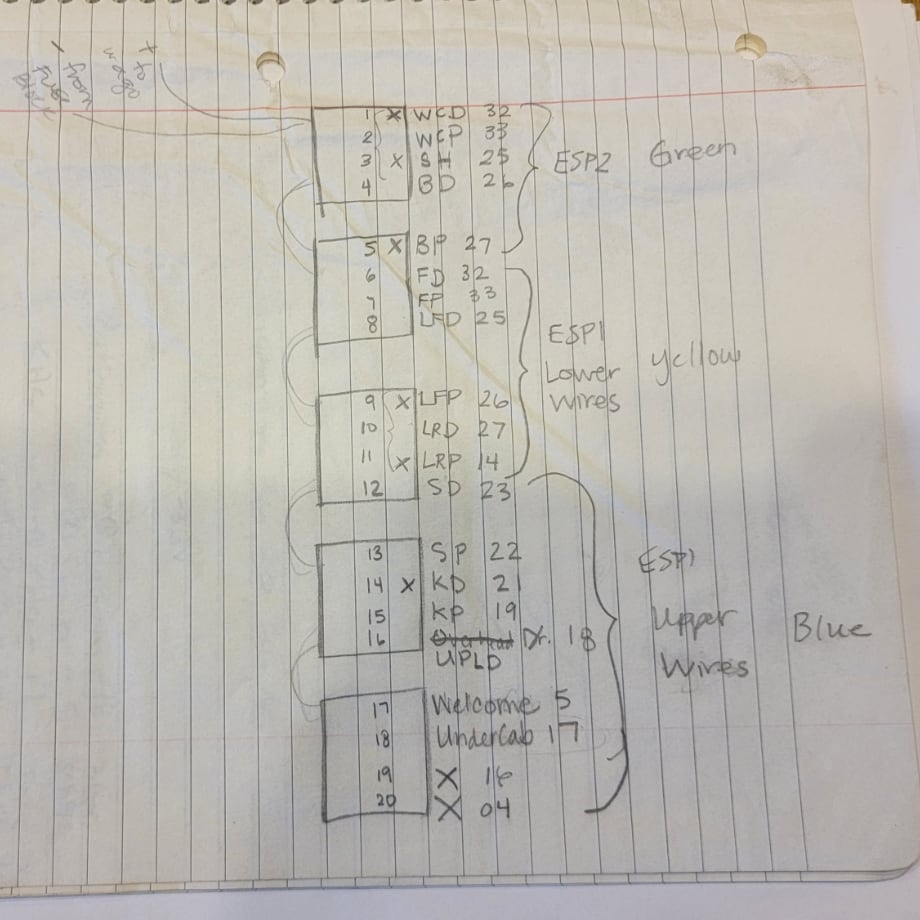 1 X WCD 32
2 WCP 33
3 X SH 25
4 BD 26
ESP2 Green
5 X BP 27
6 FD 32
7 FP 33
8 LFD 25
ESP1
Lower
Wires
Yellow
9 X LFP 26
10 LRD 27
11 X LRP 14
12 SD 23
13 SP 22
14 X KD 21
15 KP 19
16 Overhead Dr. 18
UPLD
ESP1
Upper
Wires
Blue
17 Welcome 5
18 UnderCab 17
19 X 16
20 X 04